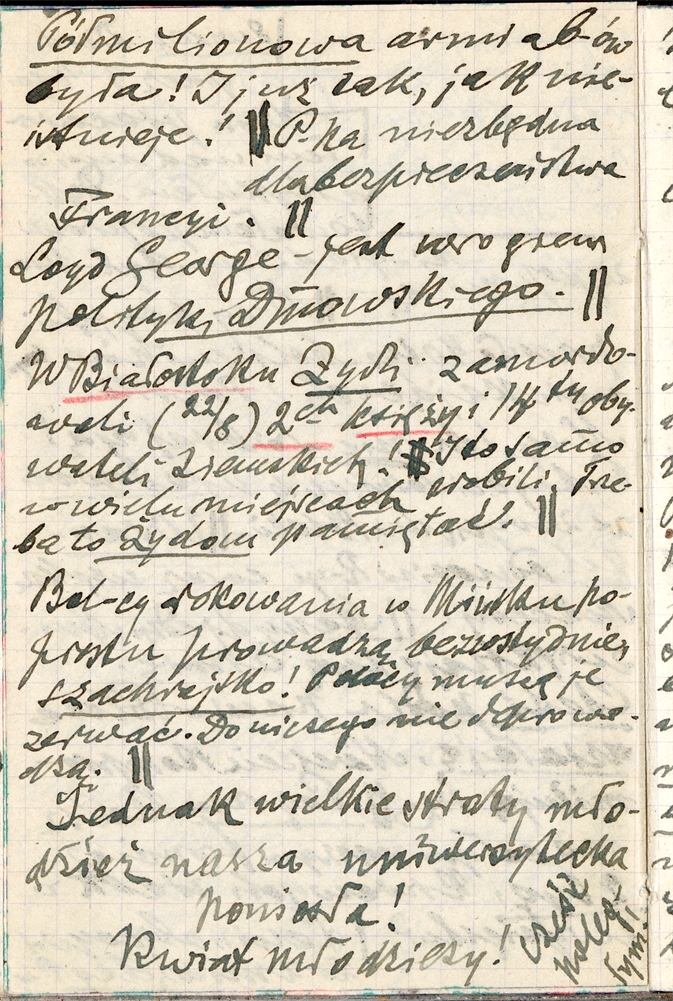 Półmilionowa armia b-ów
była! I już tak, jak nie-
istnieje! || P-ka niezbędna
dla bezpieczeństwa
Francyi. ||
Loyd George - jest wrogiem
polityki Dmowskiego. ||
W Białostoku Żydzi zamordo-
wali (22/8) 2ch księży i 14tu oby-
wateli ziemskich! || I to samo
w wielu miejscach robili. Trze-
ba to Żydom pamiętać. ||
Bol-cy rokowania w Mińsku po-
prostu prowadzą bezwstydnie,
szachrajsko! Polacy muszą je
zerwać. Do niczego nie doprowa-
dzą. ||
Jednak wielkie straty mło-
dzież nasza uniwersytecka
poniosła!
Kwiat młodzieży!
Cześć
poleg-
łym!